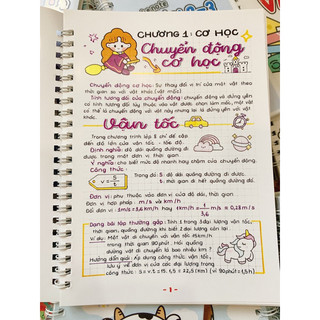 CHƯƠNG 1: CƠ HỌC
Chuyển động
cơ học
Chuyển động cơ học: Sự thay đổi vị trí của một vật theo
thời gian so với vật khác (vật mốc)
Tính tương đối của chuyển động: chuyển động và đứng yên
có tính tương đối tùy thuộc vào vật được chọn làm mốc, một vật
có thể là chuyển động với vật này nhưng lại là đứng yên với vật
khác.
Vận tốc
Trong chương trình lớp 8 chỉ đề cập
đến độ lớn của vận tốc - tốc độ.
Định nghĩa: độ dài quãng đường đi
được trong một đơn vị thời gian.
Ý nghĩa: cho biết mức độ nhanh hay chậm của chuyển động.
Công thức:
v = s/t
Trong đó: S: độ dài quãng đường đi được.
t: thời gian đi hết quãng đường đó.
Đơn vị: phụ thuộc vào đơn vị của độ dài, thời gian
Đơn vị hợp pháp: m/s và km/h
Đổi đơn vị: 1m/s = 3,6 km/h 1km/h = 1/3,6 m/s ≈ 0,28 m/s
Dạng bài tập thường gặp: Tính 1 trong 3 đại lượng vận tốc,
thời gian, quãng đường khi biết 2 đại lượng còn lại
Ví dụ: Một vật di chuyển với vận tốc 15km/h
trong thời gian 90 phút. Hỏi quãng
đường vật di chuyển là bao nhiêu km?
Hướng dẫn giải: Áp dụng công thức tính vận tốc,
lưu ý về đơn vị của các đại lượng trong
công thức: S = v.t = 15.1,5 = 22,5 (km) (vì 90 phút = 1,5h)
- 1 -